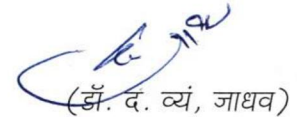 (डॉ. दं. व्यं, जाधव)